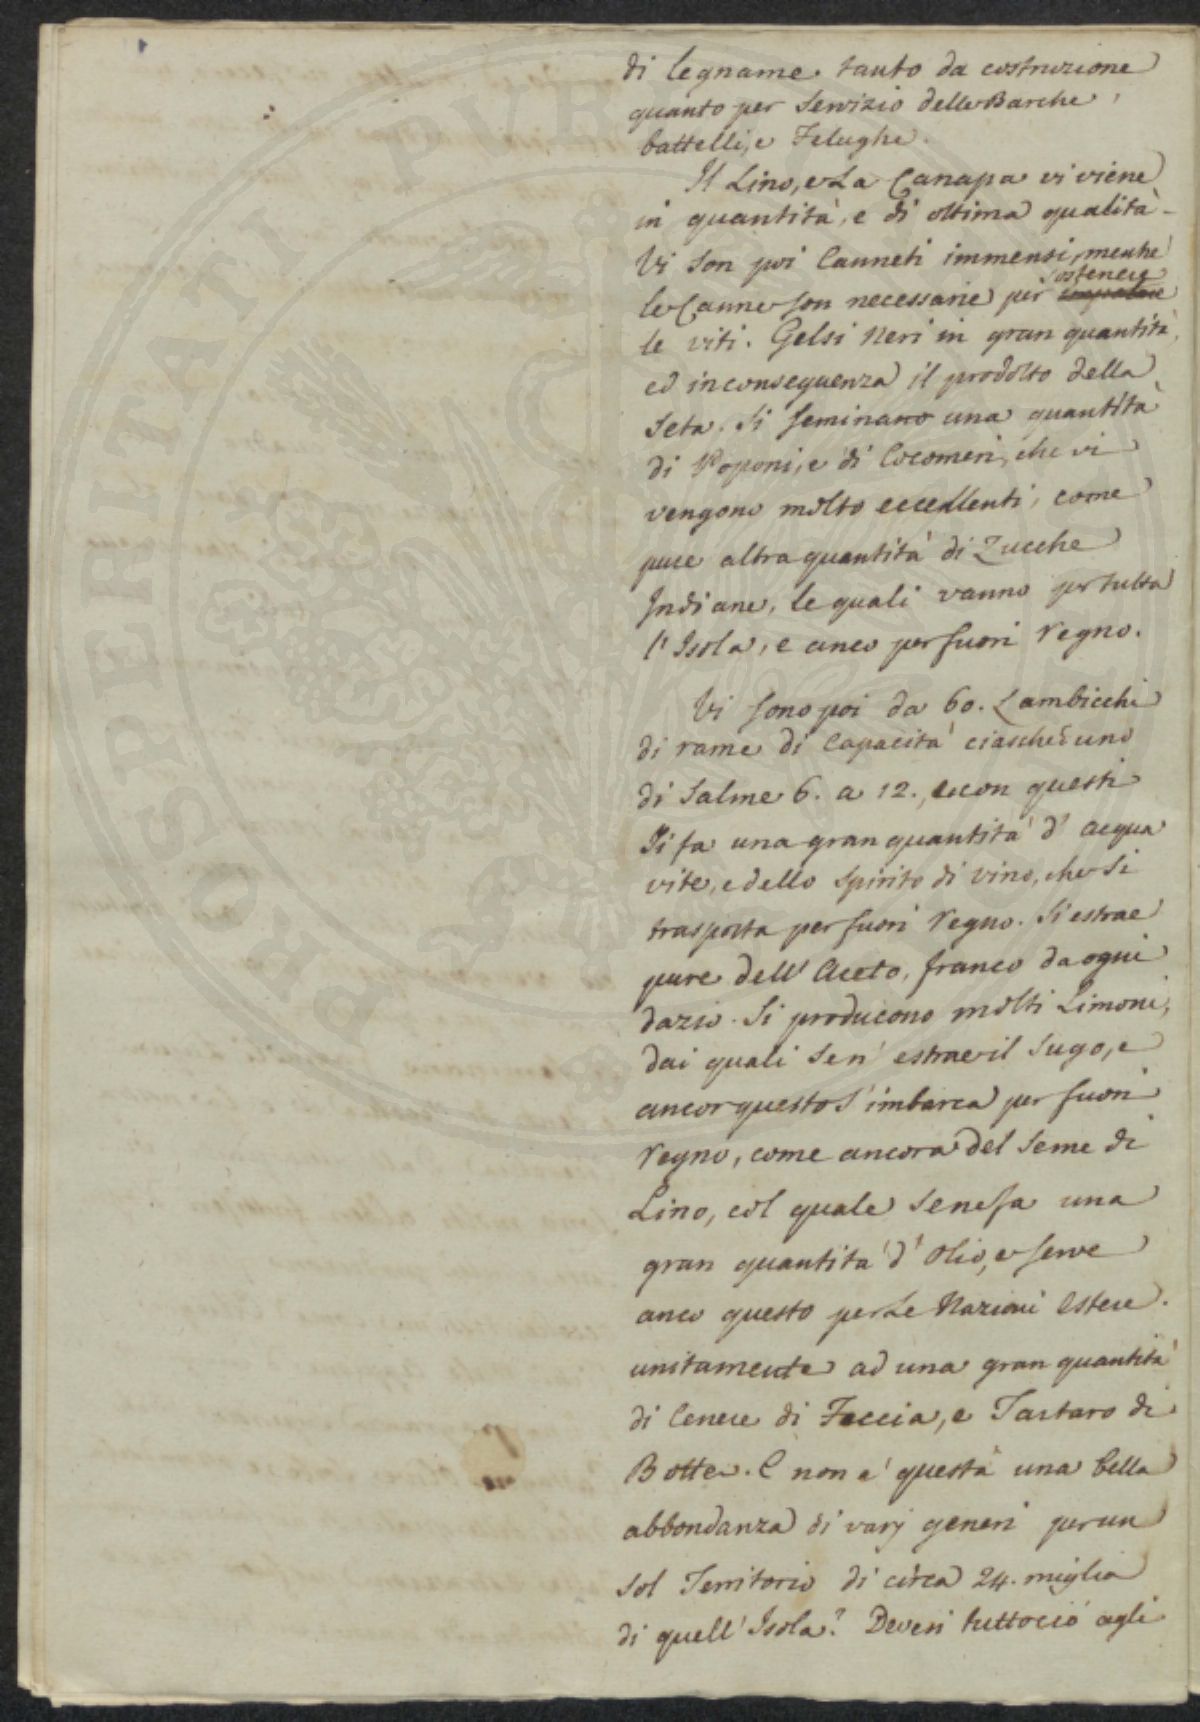 di legname. tanto da costruzione
quanto per Servizio delle Barche,
battelli, e Felughe.
Il Lino, e La Canapa vi viene
in quantità, e di ottima qualità.
Vi son poi Canneti immensi, mentre
le Canne son necessarie per sostenere
le viti. Gelsi Neri in gran quantità,
ed in conseguenza il prodotto della
Seta. Si seminano una quantità
di Poponi, e di Cocomeri, che vi
vengono molto eccellenti, come
pure altra quantità di Zucche
Indiane, le quali vanno per tutta
l'Isola, e anco per fuori Regno.
Vi sono poi da 60. Lambicchi
di rame di Capacità ciascheduno
di Salme 6. a 12., e con questi
Si fa una gran quantità d'acqua
vite, e dello Spirito di vino, che Si
trasporta per fuori Regno. Si estrae
pure dell'Aceto, franco da ogni
dazio. Si producono molti Limoni,
dai quali Sen'estrae il Sugo, e
ancor questo S'imbarca per fuori
Regno, come ancora del Seme di
Lino, col quale Se ne fa una
gran quantità d'Olio, e serve
anco questo per Le Nazioni Estere.
unitamente ad una gran quantità
di Cenere di Feccia, e Tartaro di
Botte. E non è questa una bella
abbondanza di varj generi per un
Sol Territorio di circa 24. miglia
di quell'Isola? Devesi tuttociò agli
PROSPERITATI PUBLICAE